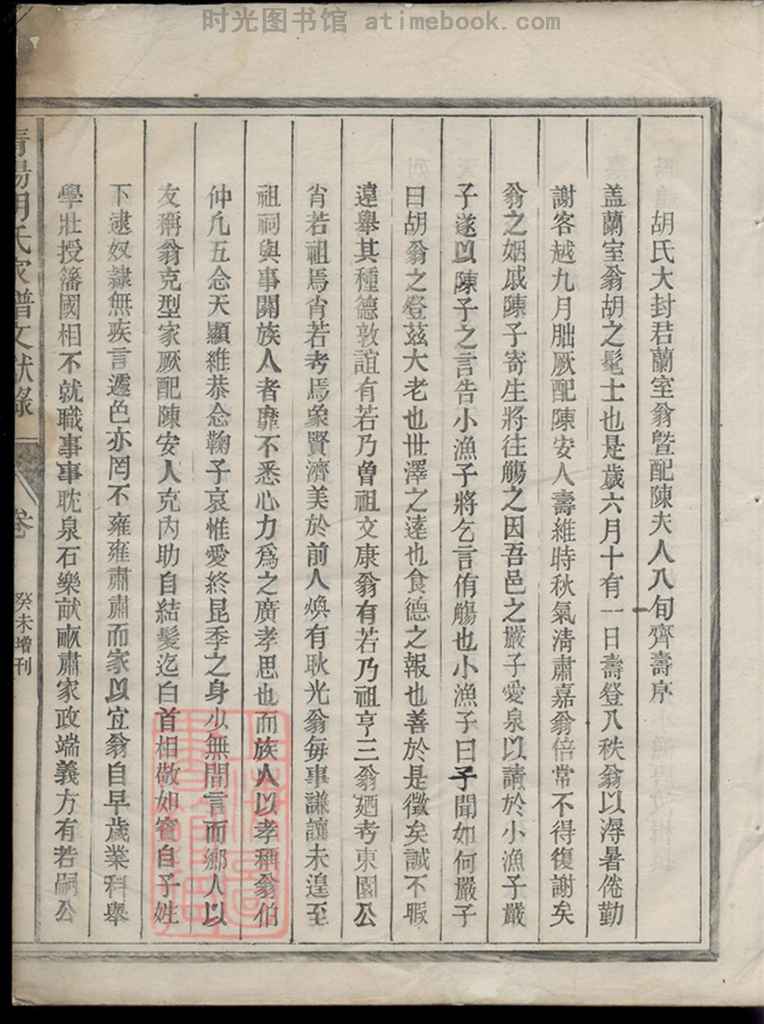 时光图书馆 atimebook.com
胡氏大封君蘭室翁曁配陳夫人八旬齊壽序
盖蘭室翁胡之髦士也是歲六月十有一日壽登八秩翁以溽暑倦勤
謝客越九月朏厥配陳安人壽維時秋氣清肅嘉翁倍常不得復謝矣
翁之姻戚陳子寄生將往觴之因吾邑之嚴子愛泉以請於小漁子嚴
子遂以陳子之言告小漁子將乞言侑觴也小漁子曰子聞如何嚴子
曰胡翁之登茲大老也世澤之逺也食德之報也善於是徵矣誠不暇
遠舉其種德敦誼有若乃曾祖文康翁有若乃祖亨三翁廼考東園公
肖若祖焉肖若考焉象賢濟美於前人煥有耿光翁每事謙讓未遑至
祖祠與事關族人者靡不悉心力爲之廣孝思也而族人以孝稱翁伯
仲凡五念天顯維恭念鞠子哀惟愛終昆季之身少無間言而鄉人以
友稱翁克型家厥配陳安人克内助自結髮迄白首相敬如賓自子姓
下逮奴隸無疾言遽色亦罔不雍雍肅肅而家以宜翁自早歲業科舉
學壯授藩國相不就職事事耽泉石樂畎畝肅家政端義方有若嗣公
青陽胡氏家譜文獻錄 卷 癸未增刊